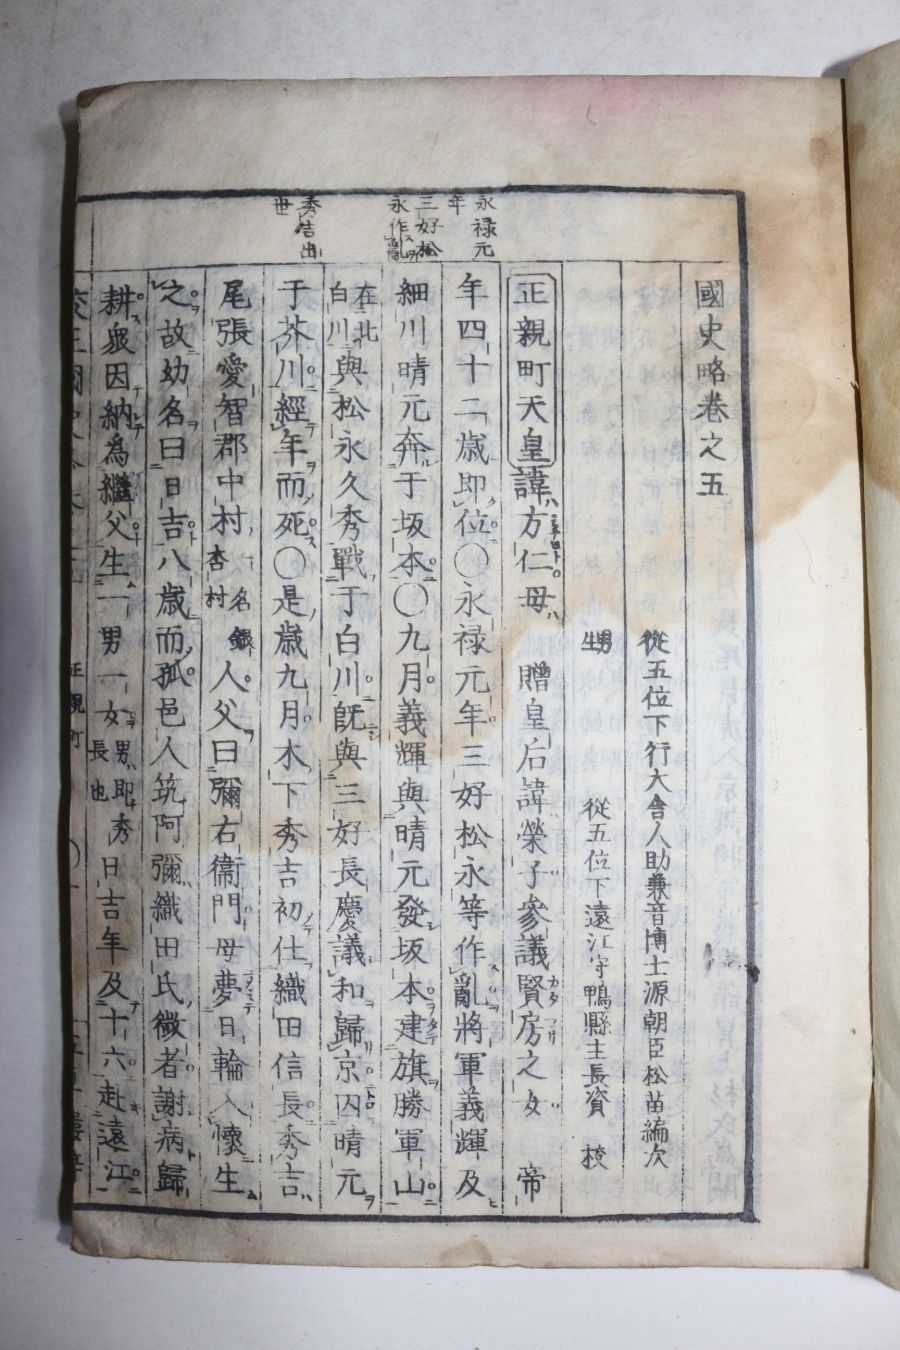 國史略卷之五
從五位下行大舍人助兼音博士源朝臣松苗編次
男
從五位下遠江守鴨縣主長資 校
正親町天皇諱方仁母 贈皇后諱榮子參議賢房之女 帝
年四十二歲即位〇永禄元年三好松永等作亂將軍義輝及
細川晴元奔于坂本〇九月義輝與晴元發坂本建旗勝軍山
在北白川與松永久秀戰于白川既與三好長慶議和歸京囚晴元
于芥川經年而死〇是歲九月木下秀吉初仕織田信長秀吉
尾張愛智郡中村人父曰彌右衞門母夢日輪入懷生
之故幼名曰日吉八歲而孤邑人筑阿彌織田氏微者謝病歸
耕衆因納為繼父生一男一女男即秀長也日吉年及十六赴遠江
永禄元年
三好松永作亂
秀吉出世
正親町